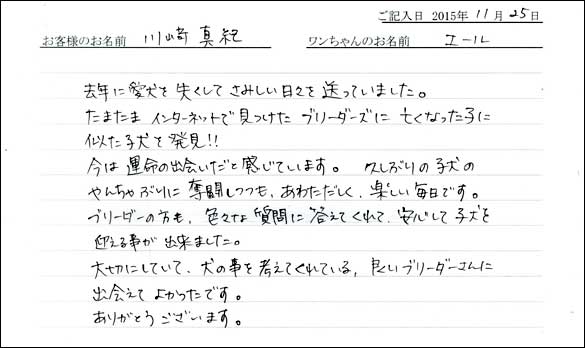 ご記入日 2015年 11月 25日
お客様のお名前 川崎 真紀 ワンちゃんのお名前 エール
去年に愛犬を失くしてさみしい日々を送っていました。
たまたまインターネットで見つけたブリーダーズに亡くなった子に
似た子犬を発見!!
今は運命の出会いだと感じています。 久しぶりの子犬の
やんちゃぶりに奮闘しつつも、あわただしく、楽しい毎日です。
ブリーダーの方も、色々な質問に答えてくれて、安心して子犬を
迎える事が出来ました。
大切にしていて、犬の事を考えてくれている、良いブリーダーさんに
出会えてよかったです。
ありがとうございます。